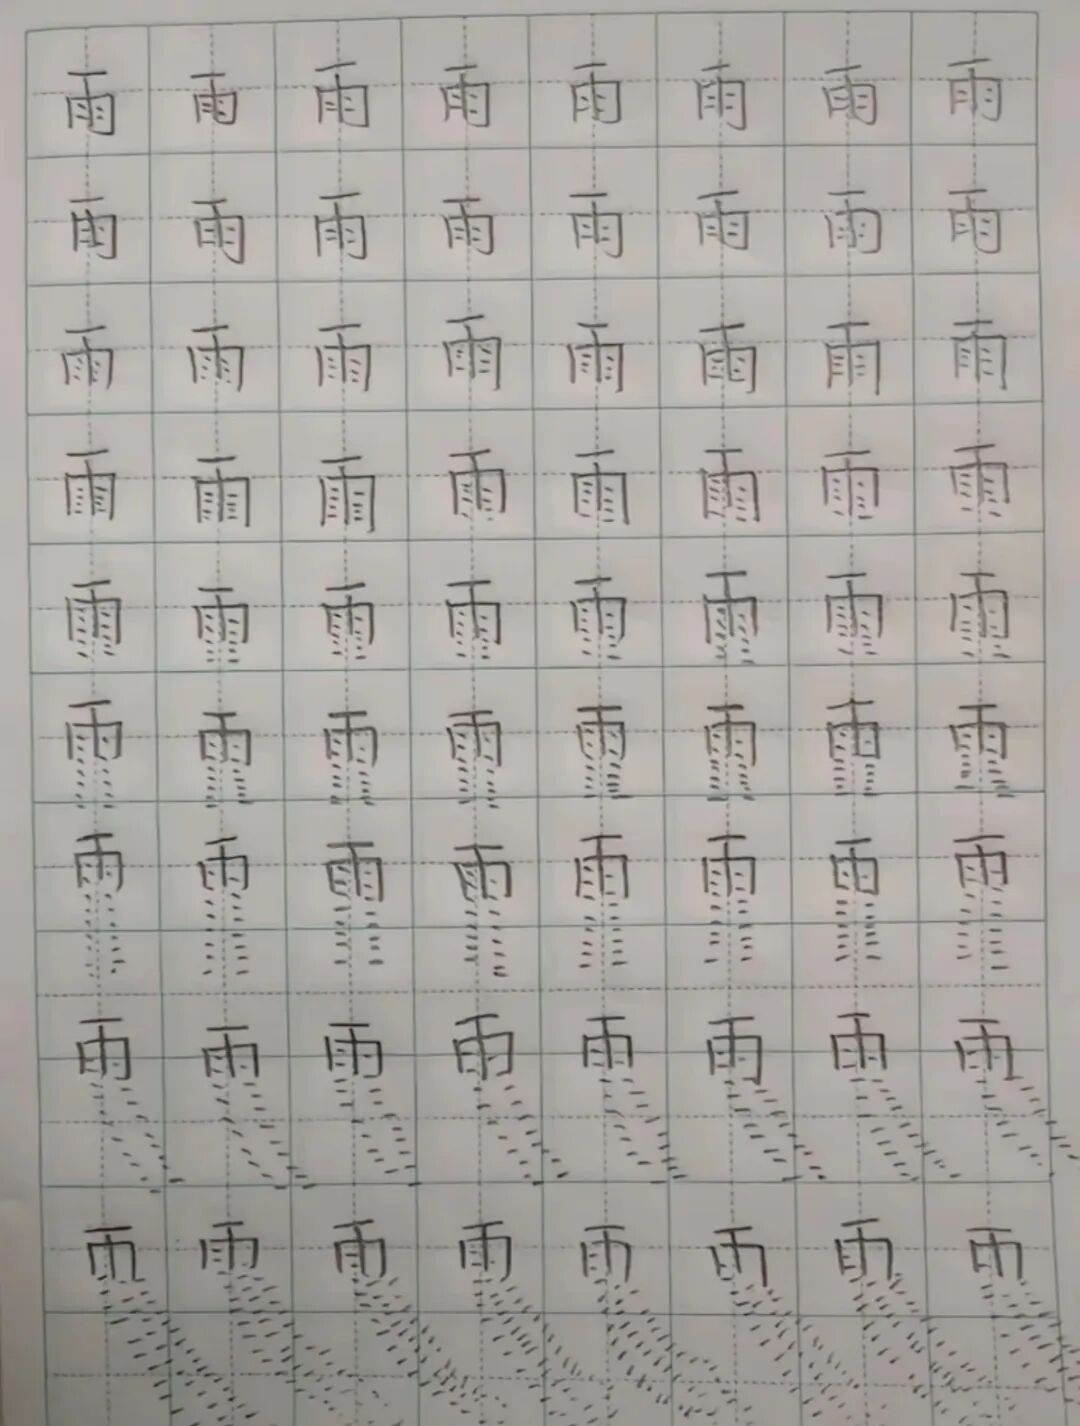 雨 雨 雨 雨 雨 雨 雨 雨
雨 雨 雨 雨 雨 雨 雨 雨
雨 雨 雨 雨 雨 雨 雨 雨
雨 雨 雨 雨 雨 雨 雨 雨
雨 雨 雨 雨 雨 雨 雨 雨
雨 雨 雨 雨 雨 雨 雨 雨
雨 雨 雨 雨 雨 雨 雨 雨
雨 雨 雨 雨 雨 雨 雨 雨
雨 雨 雨 雨 雨 雨 雨 雨